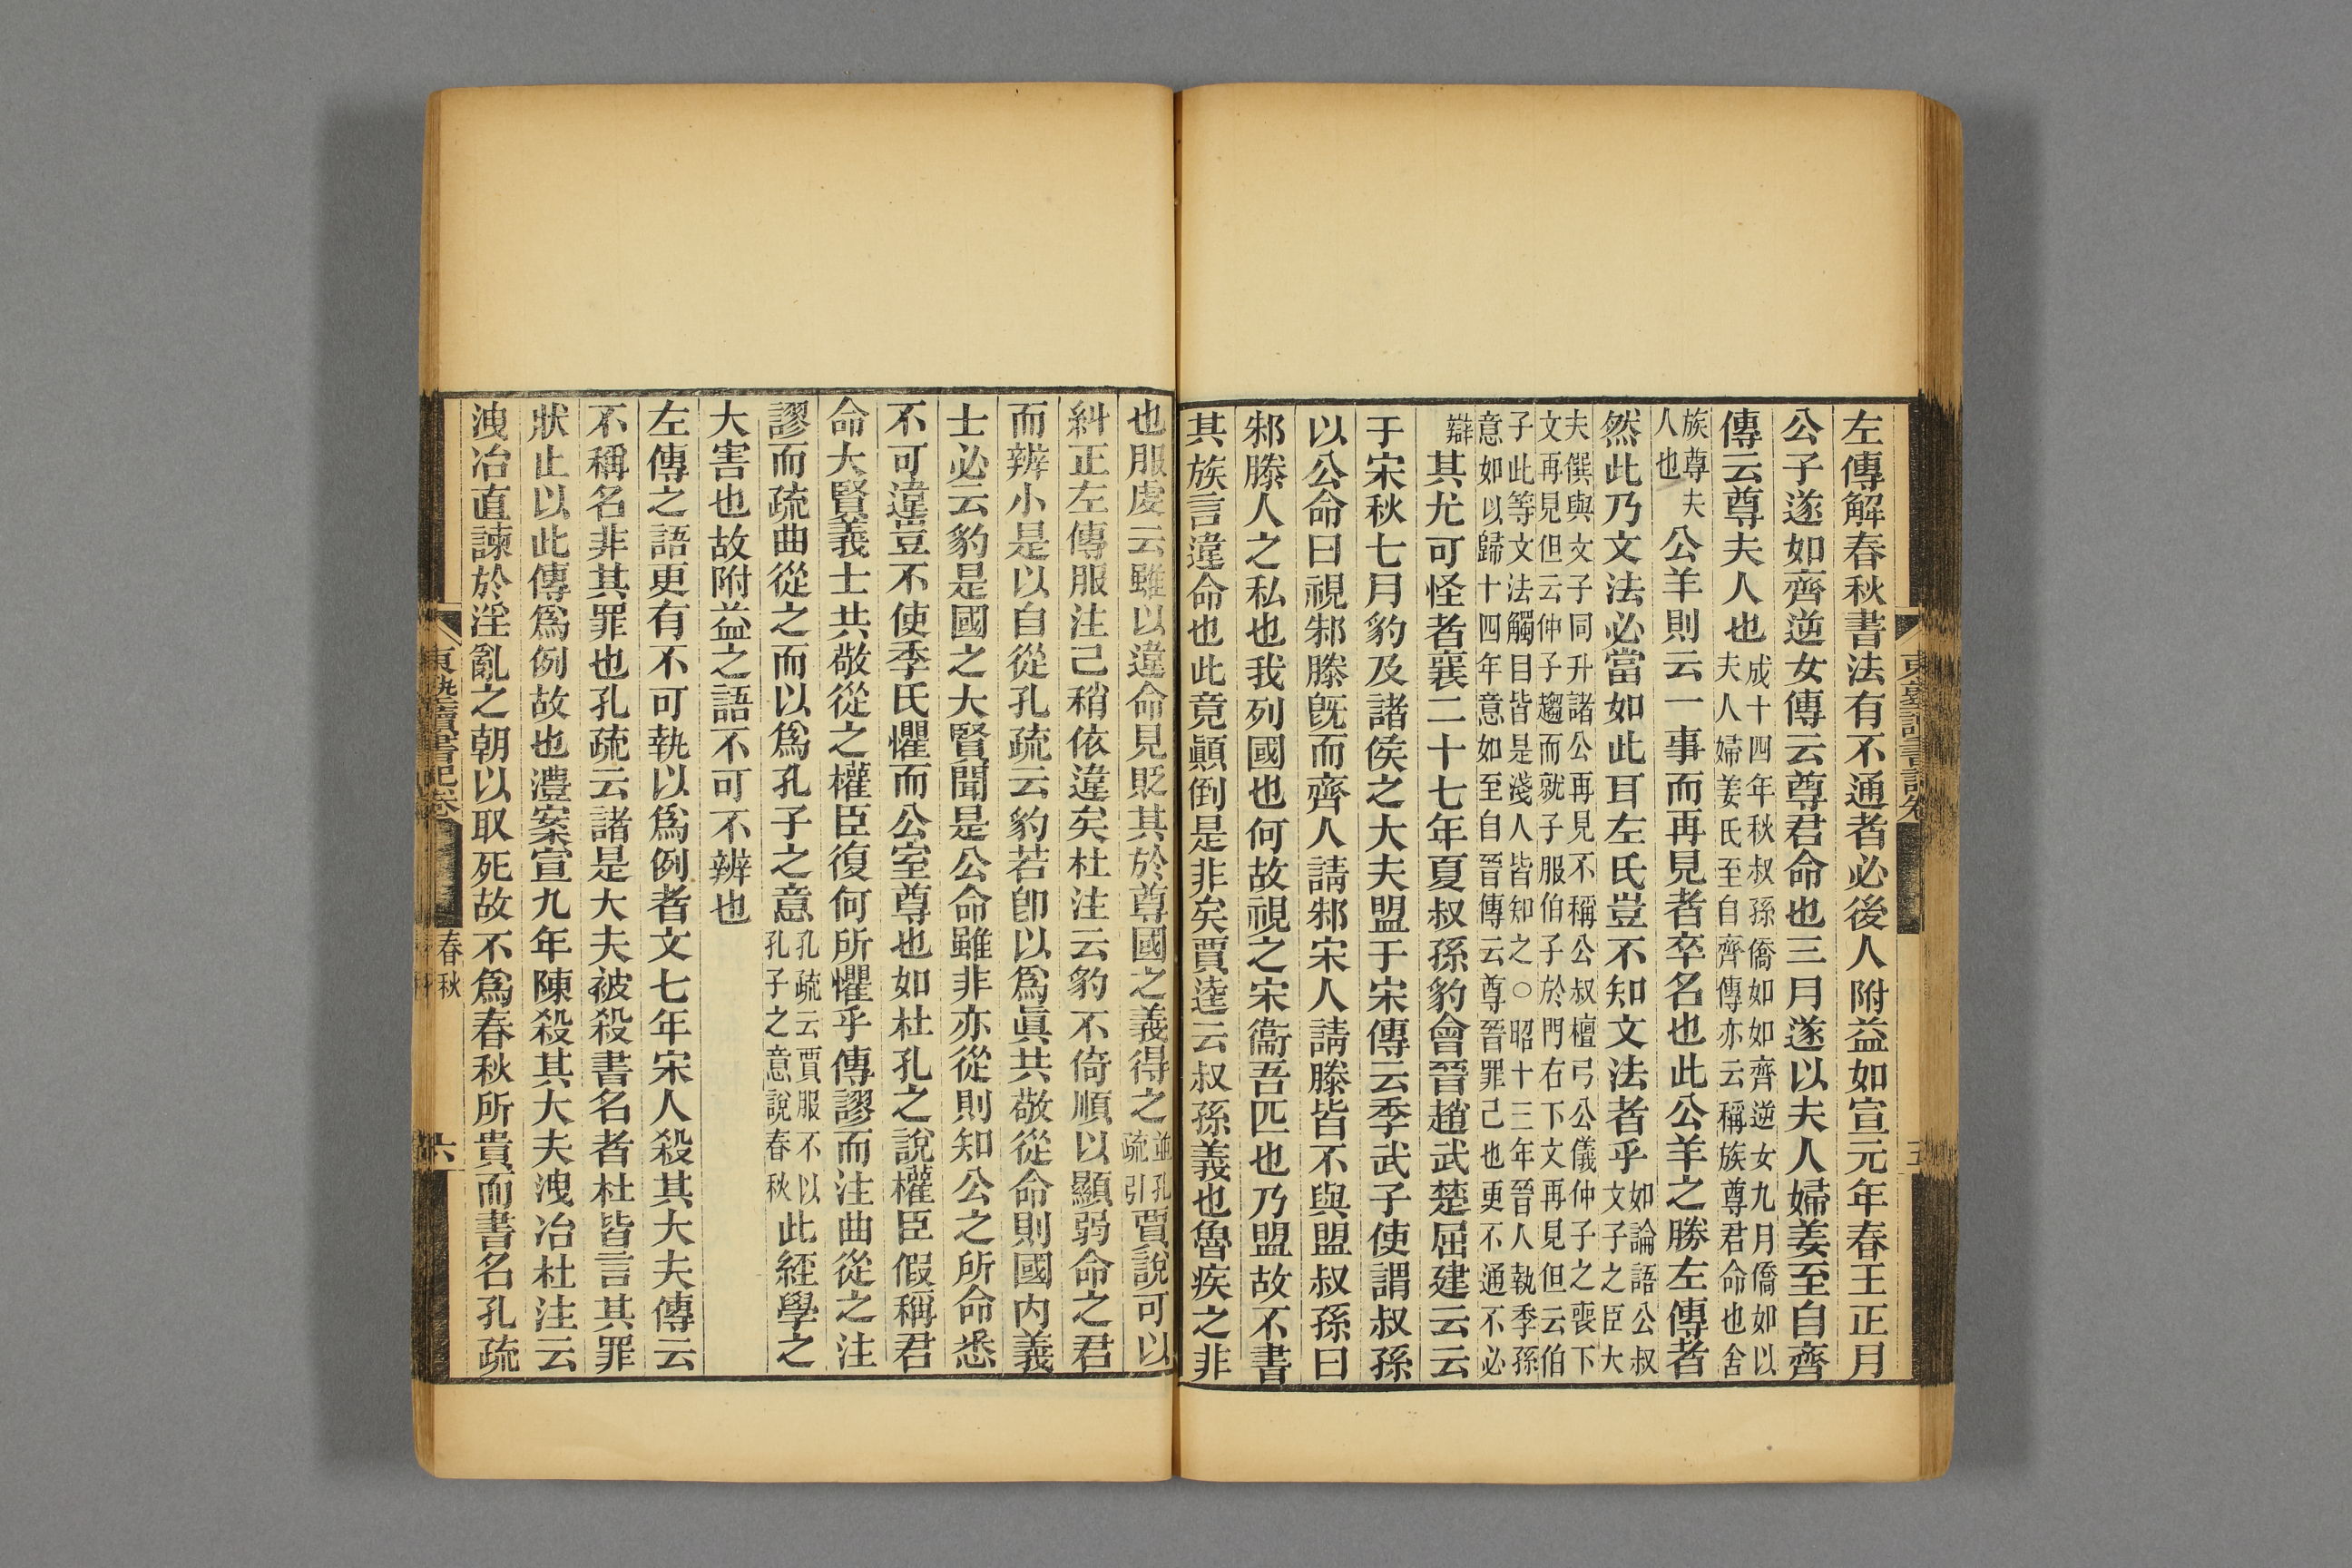 左傳解春秋書法有不通者必後人附益如宣元年春王正月
公子遂如齊逆女傳云尊君命也三月遂以夫人婦姜至自齊
傳云尊夫人也成十四年秋叔孫僑如如齊逆女九月僑如以夫人婦姜氏至自齊傳亦云稱族尊君命也舍
族尊夫人也公羊則云一事而再見者卒名也此公羊之勝左傳者
然此乃文法必當如此耳左氏豈不知文法者乎如論語公叔文子之臣大
夫僎與文子同升諸公再見不稱公叔檀弓公儀仲子之喪下文再見但云仲子趨而就子服伯子於門右下文再見但云伯
子此等文法觸目皆是淺人皆知之○昭十三年晉人執季孫意如以歸十四年意如至自晉傳云尊晉罪己也更不通不必
辯其尤可怪者襄二十七年夏叔孫豹會晉趙武楚屈建云云
于宋秋七月豹及諸侯之大夫盟于宋傳云季武子使謂叔孫
以公命曰視邾滕旣而齊人請邾宋人請滕皆不與盟叔孫曰
邾滕人之私也我列國也何故視之宋衞吾匹也乃盟故不書
其族言違命也此竟顚倒是非矣賈逵云叔孫義也魯疾之非
東塾讀書記卷
五
也服虔云雖以違命見貶其於尊國之義得之並孔疏引賈說可以
糾正左傳服注己稍依違矣杜注云豹不倚順以顯弱命之君
而辨小是以自從孔疏云豹若卽以爲眞共敬從命則國內義
士必云豹是國之大賢聞是公命雖非亦從則知公之所命悉
不可違豈不使季氏懼而公室尊也如杜孔之說權臣假稱君
命大賢義士共敬從之權臣復何所懼乎傳謬而注曲從之注
謬而疏曲從之而以爲孔子之意孔疏云賈服不以孔子之意說春秋此經學之
大害也故附益之語不可不辨也
左傳之語更有不可執以爲例者文七年宋人殺其大夫傳云
不稱名非其罪也孔疏云諸是大夫被殺書名者杜皆言其罪
狀止以此傳爲例故也澧案宣九年陳殺其大夫洩冶杜注云
洩冶直諫於淫亂之朝以取死故不爲春秋所貴而書名孔疏
東塾讀書記卷
春秋
六